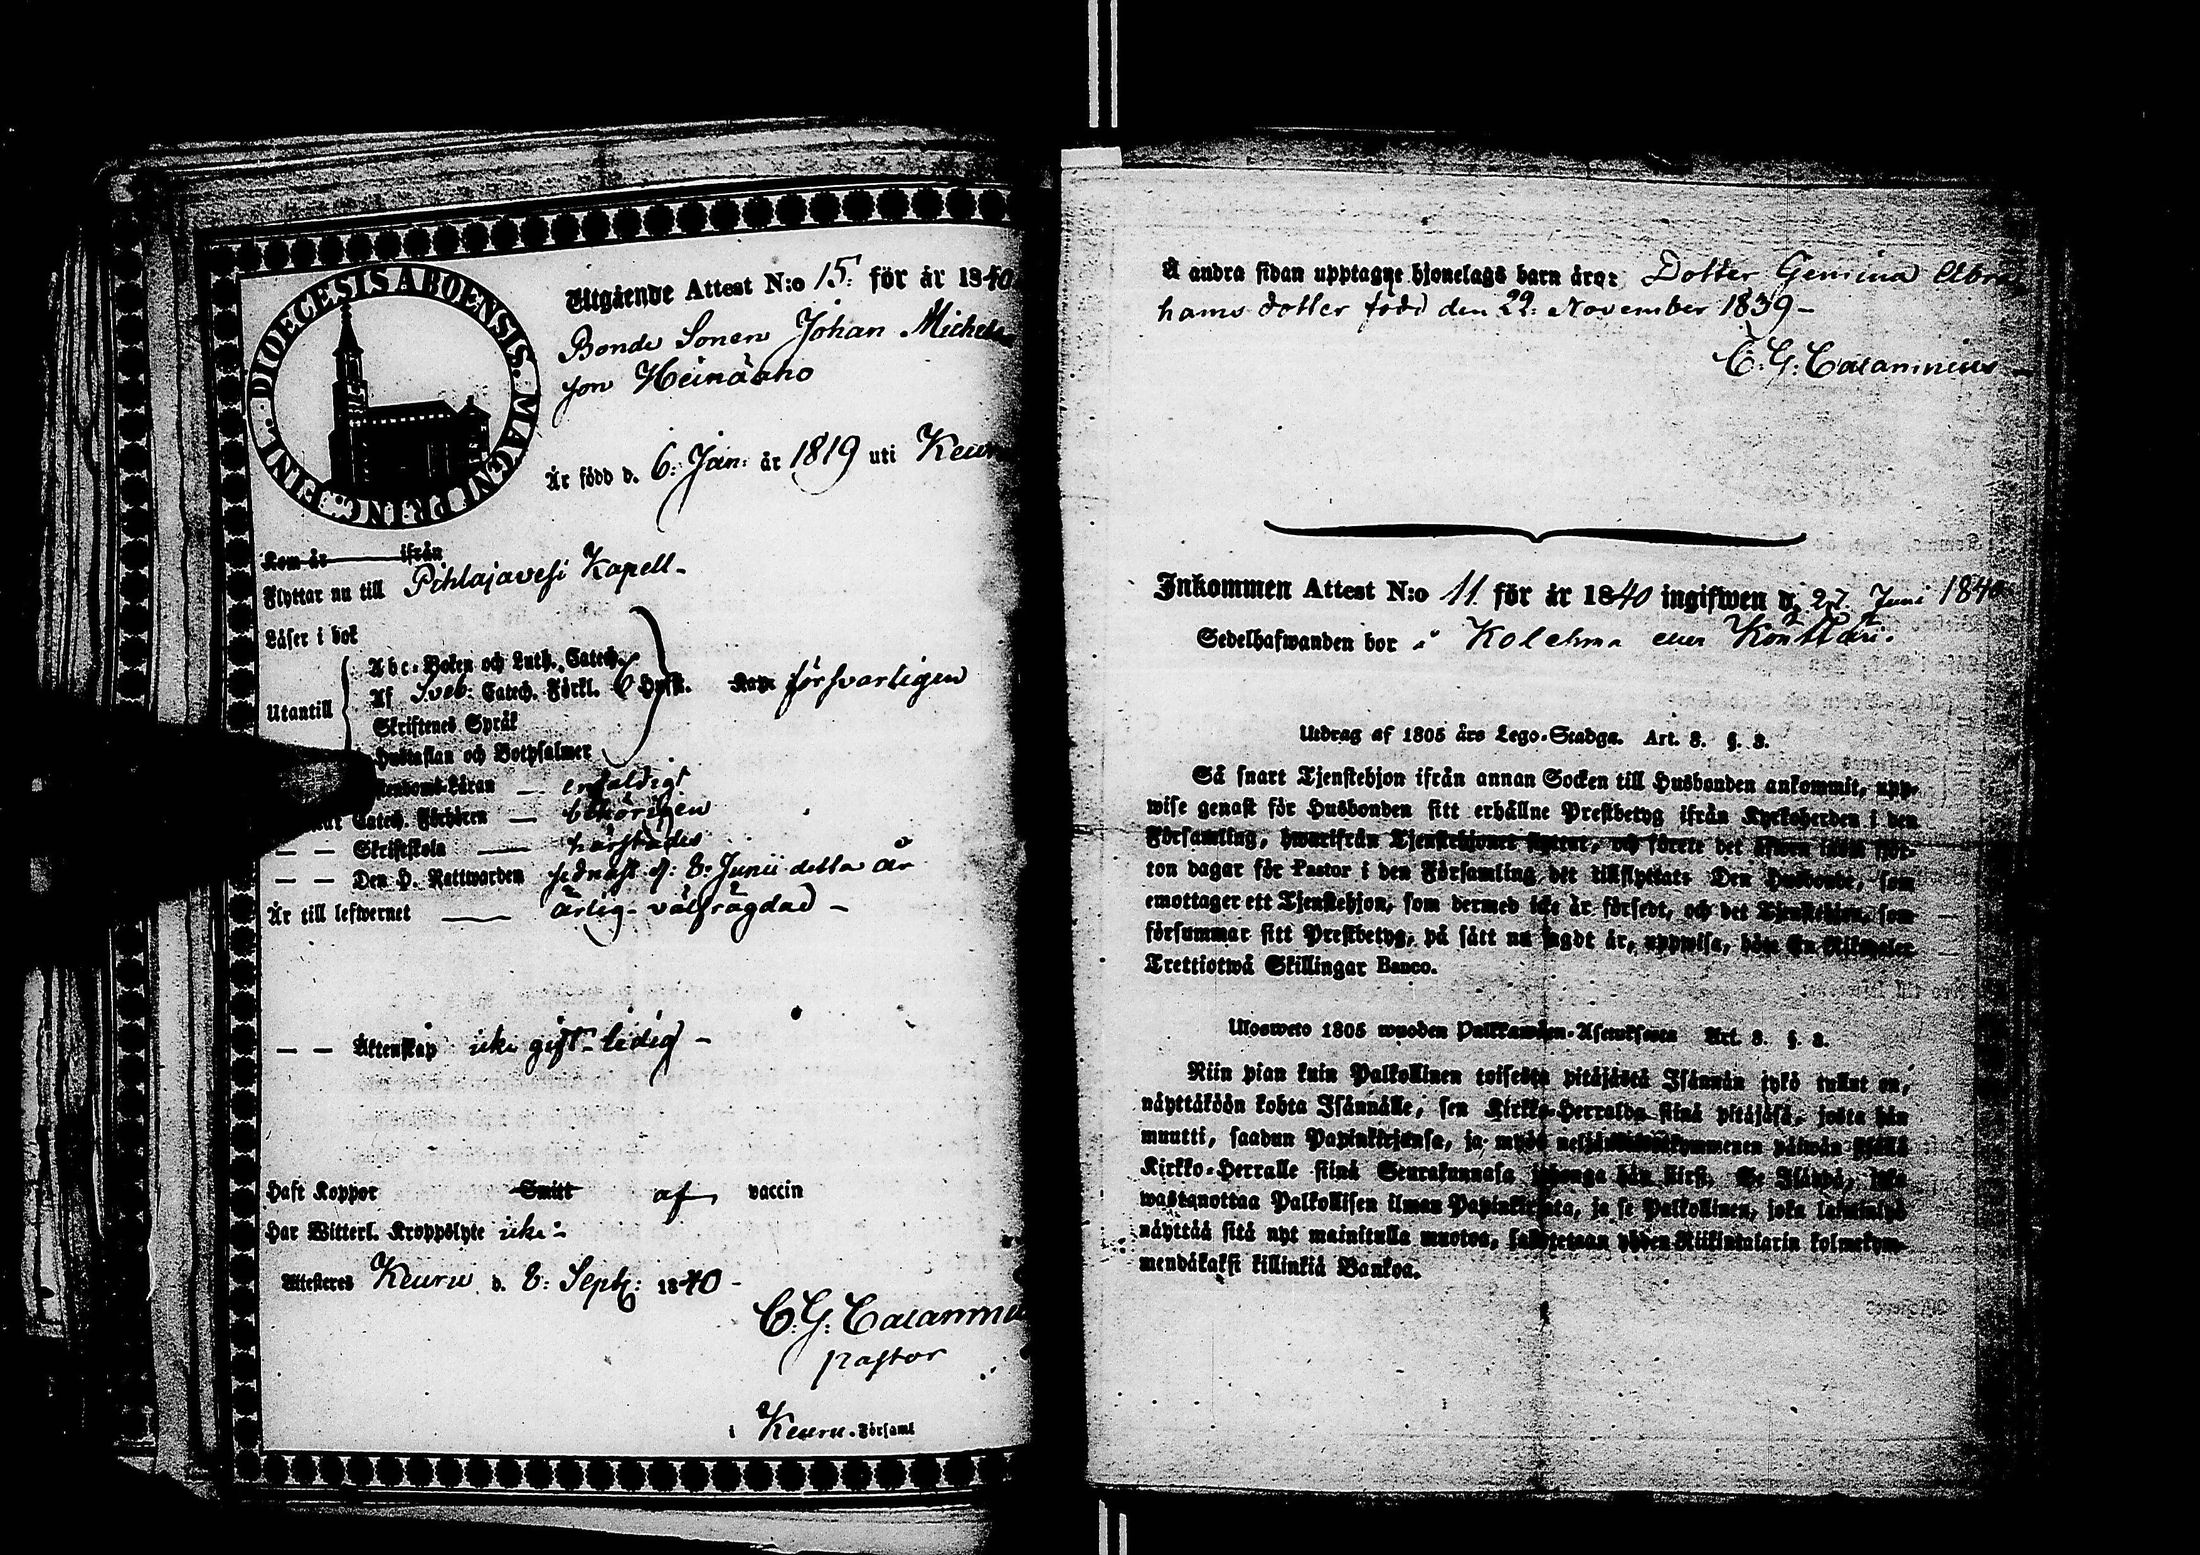 DIOECESIS ABOENSIS. MAGNI PRINC: FINL.
Utgående Attest N:o 15: för år 1840
Bonde Sonen Johan Michels
son Heinäaho
Är född d. 6: Jan: år 1819 uti Keuru
Kom år ifrån
Flyttar nu till Pihlajavesi Kapell-
Läser i bok
Utantill
Abc-Boken och Luth. Catech.
Af Sveb: Catech. Förkl. 6 Hufst. försvarligen
Skriftenes Språk
Hustaflan och Botpsalmer
enfaldigt
Catech. Förhören — behörigen
— — Skriftskola — härstädes
— — Den H. Nattwarden sednast d: 8: Junii detta år
Är till lefwernet — ärlig- välfrägdad -
— — Äktenskap icke gift- ledig -
Haft Koppor Smitt af vaccin
Har Witterl. Kroppslyte icke -
Attesteres Keuru d. 8: Sept: 1840 -
C: G: Calamnius
Pastor
i Keuru. Församl
Å andra sidan upptagne hjonelags barn äro: Dotter Gemina Abra
hams dotter född den 22: November 1839 -
C: G: Calamnius
Inkommen Attest N:o 11. för år 1840 ingifwen d. 27. Juni 1840
Sedelhafwanden bor å Kolehma
Utdrag af 1805 års Lego-Stadga. Art. 8. §. 3.
Så snart Tjenstehjon ifrån annan Socken till Husbonden ankommit, upp-
wise genast för Husbonden sitt erhållne Prestbetyg ifrån Kyrkoherden i den
Församling, hwarifrån Tjenstehjonet flyttat, och förete det inom fjor-
ton dagar för Pastor i den Församling det tillflyttat: Den Husbonde, som
emottager ett Tjenstehjon, som dermed icke är försedt, och det Tjenstehjon, som
försummar sitt Prestbetyg, på sätt nu sagdt är, uppwisa, böte En Riksdaler
Trettiotwå Skillingar Banco.
Ulosweto 1805 wuoden Palkkawäen-Asetuksesta Art. 8. §. 3.
Niin pian kuin Palkollinen toisesta pitäjästä Isännän tykö tullut on,
näyttäköön kohta Isännälle, sen Kirkko-Herralda siinä pitäjäsä, josta hän
muutti, saadun Papinkirjansa, ja neljäntoistakymmenen päiwän
Kirkko-Herralle siinä Seurakunnasa johonga hän siirsi. Se Isäntä, joka
wastanottaa Palkollisen ilman Papinkirjata, ja se Palkollinen, joka laiminlyö
näyttää sitä nyt mainitulla muotoa, sakotetaan yhden Riikintalarin kolmekym-
mendäkaksi killinkiä Bankoa.